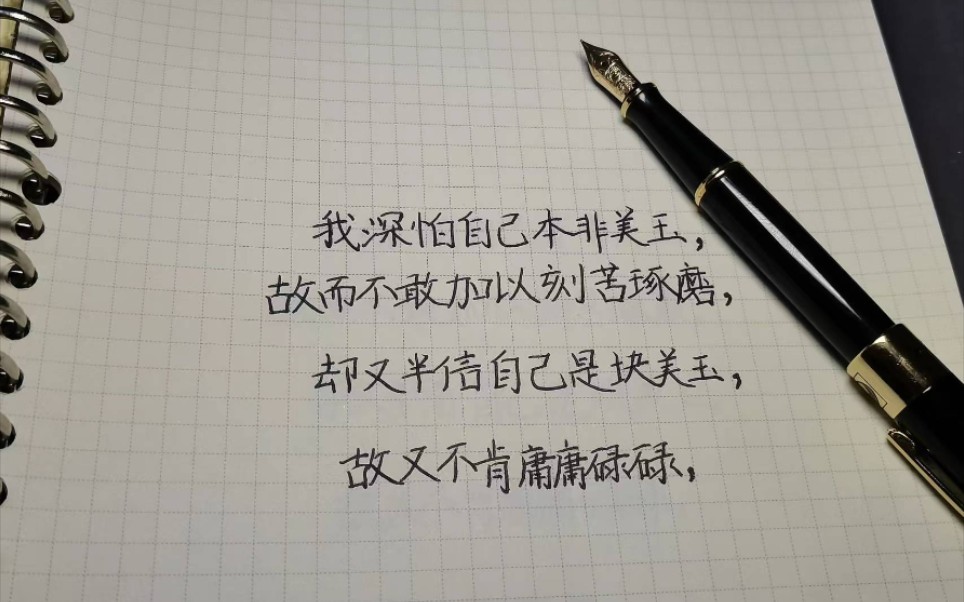 我深怕自己本非美玉，
故而不敢加以刻苦琢磨，
却又半信自己是块美玉，
故又不肯庸庸碌碌，